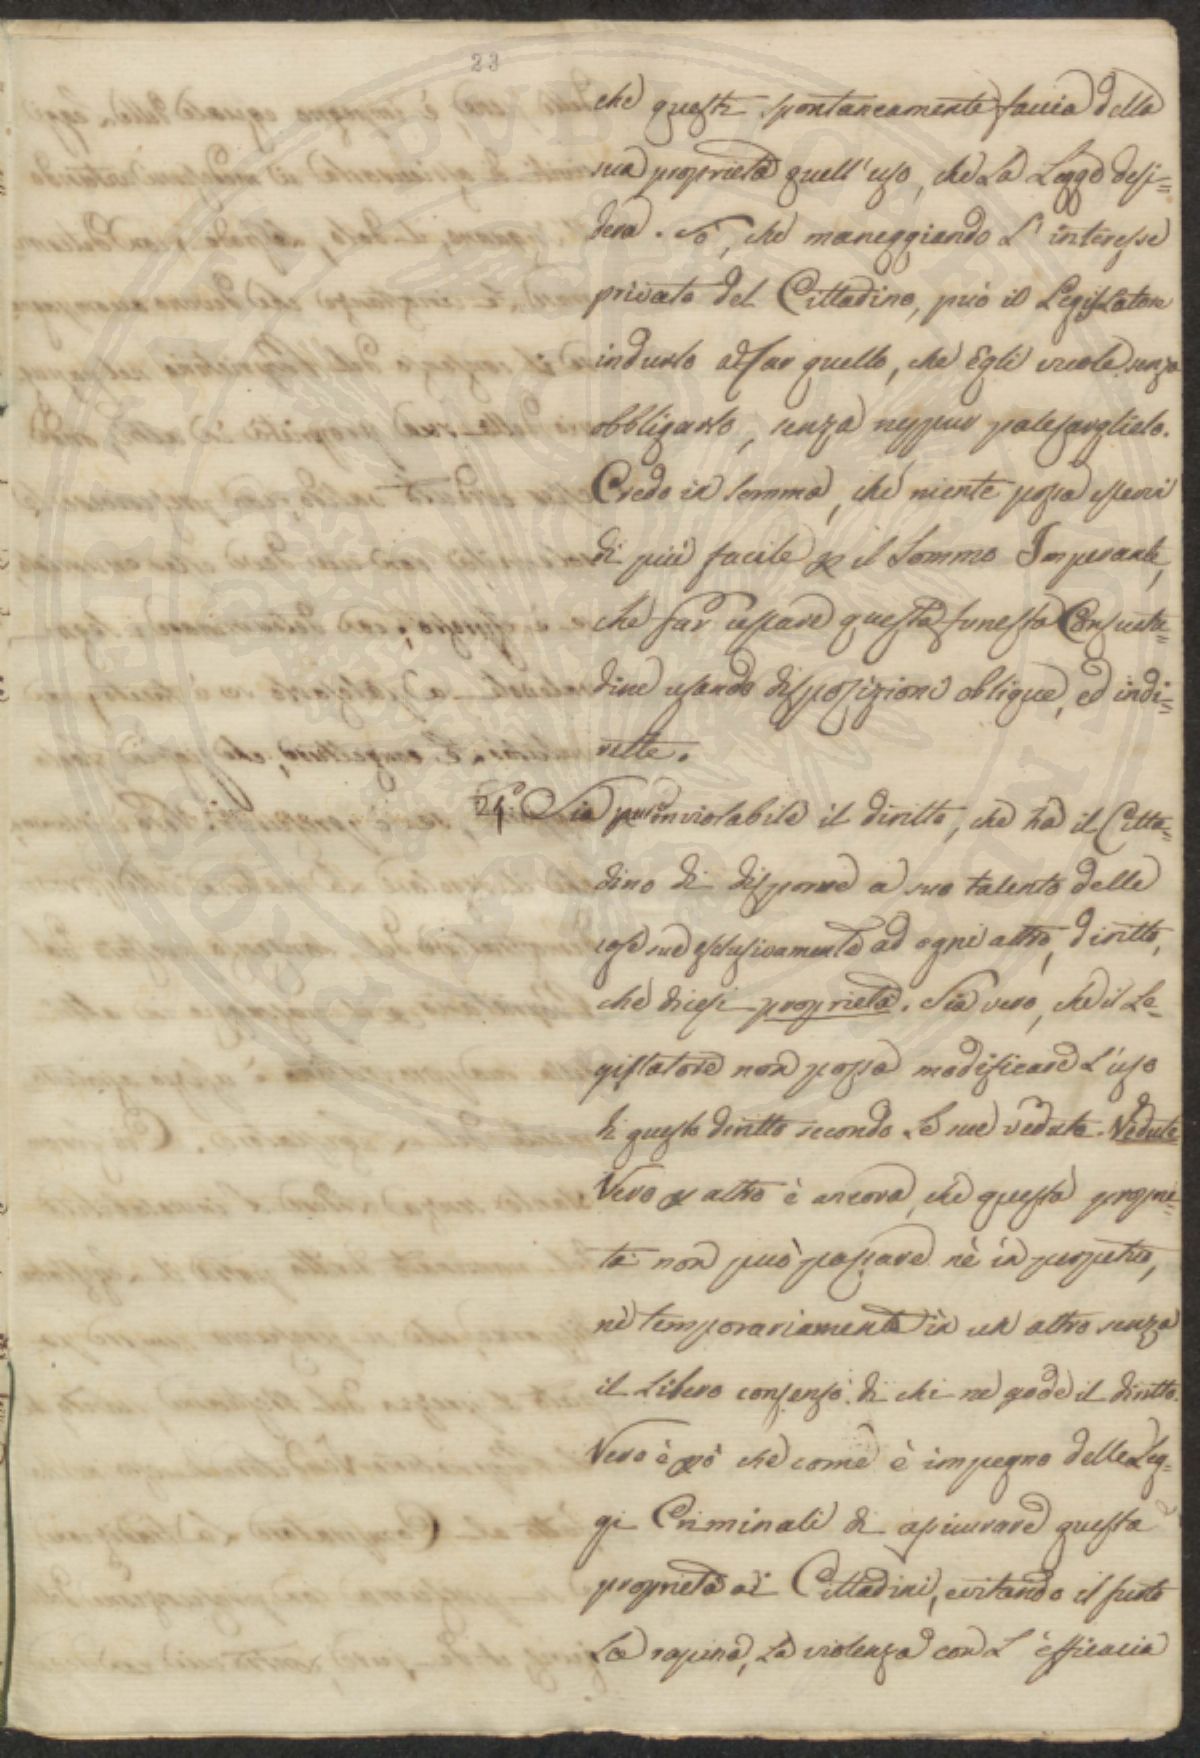 23
che questi spontaneamente faccia della
sua proprietà quell'uso, che La Legge desi=
dera. Sò, che maneggiando L'interesse
privato del Cittadino, può il Legislatore
indurlo à far quello, che Egli vuole senza
obbligarlo, senza neppur palesarglielo.
Credo in somma, che niente possa esservi
di più facile p il Sommo Imperante,
che far cessare questa funesta Consuetu=
dine usando disposizioni oblique, ed indi=
rette.
24. Sia pur inviolabile il diritto, che hà il Citta=
dino di disporre a suo talento delle
cose sue esclusivamente ad ogni altro, diritto,
che dicesi proprietà. Sia vero, che il Le=
gislatore non possa modificare L'uso
di questo diritto secondo Le sue vedute. Vedute
Vero p altro è ancora, che questa proprie=
tà non può passare nè in perpetuo,
nè temporariamente in un altro senza
il Libero consenso di chi ne gode il diritto.
Vero è però che come è impegno delle Leg=
gi Criminali di assicurare questa
proprietà ai Cittadini, evitando il furto
La rapina, La violenza con L'efficacia